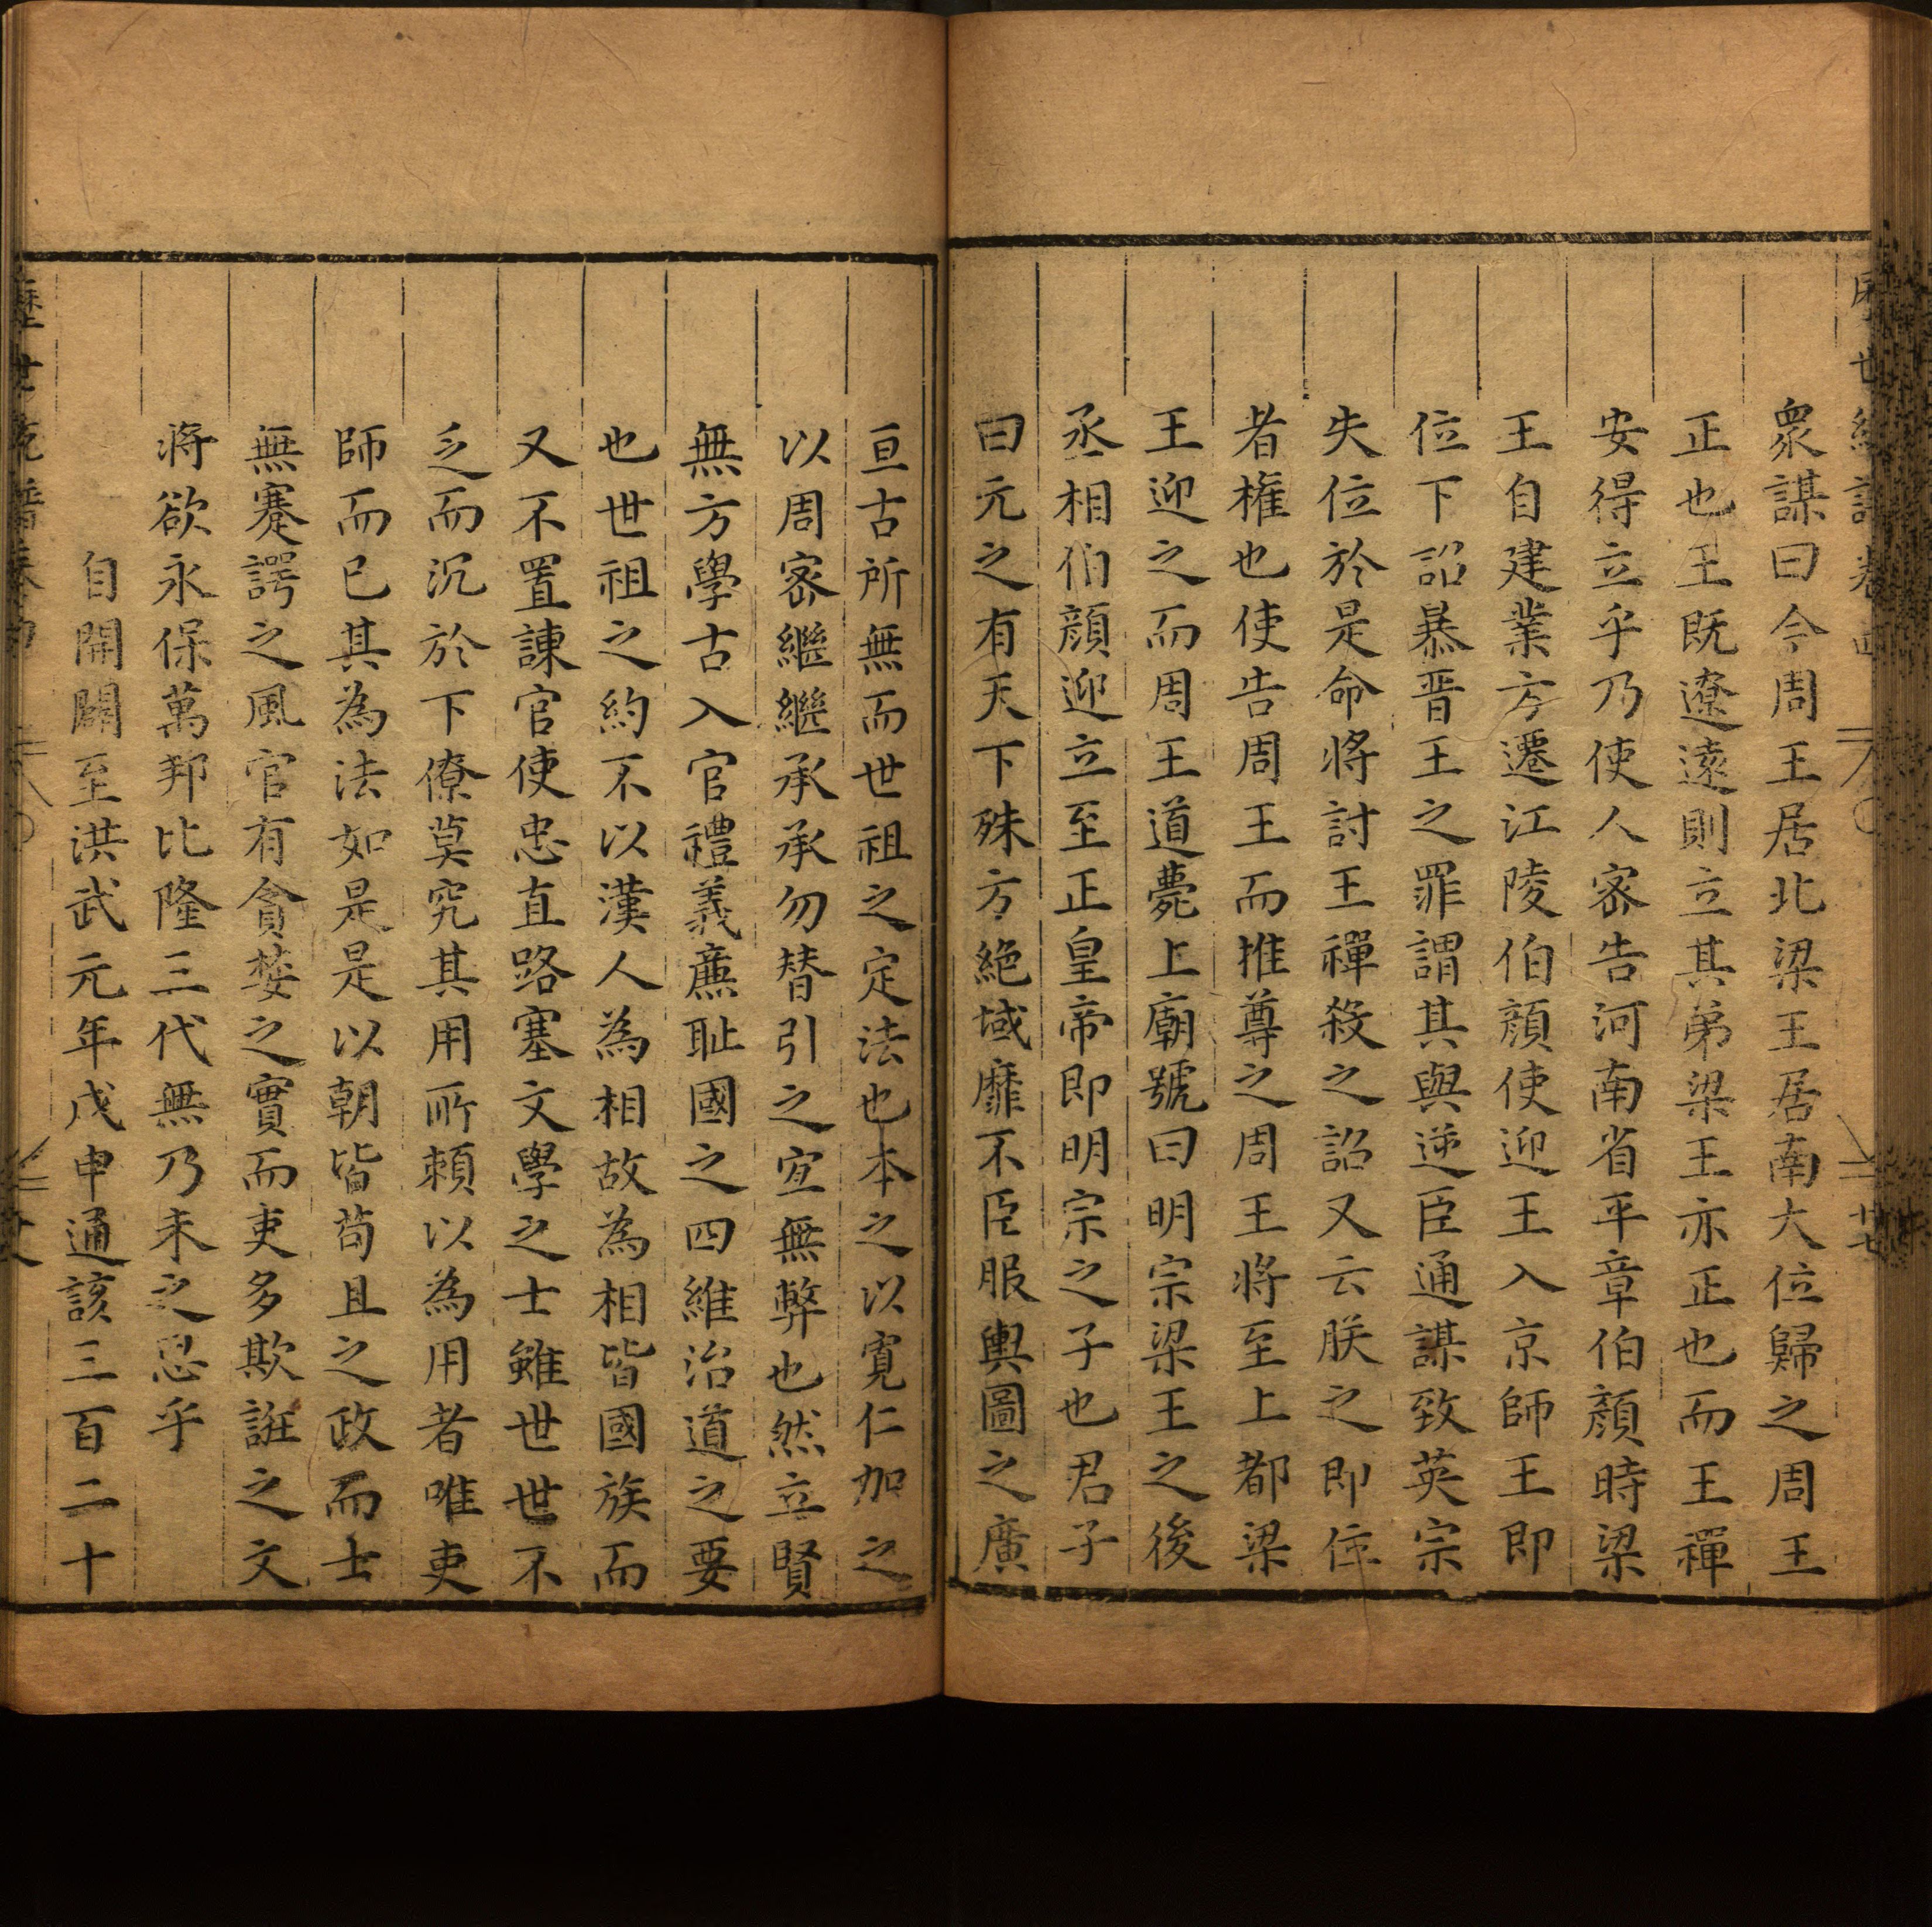 衆謀曰今周王居北梁王居南大位歸之周王
正也王既遼遠則立其弟梁王亦正也而王禪
安得立乎乃使人密告河南省平章伯顔時梁
王自建業方遷江陵伯顔使迎王入京師王即
位下詔暴晋王之罪謂其與逆臣通謀致英宗
失位於是命將討王禪殺之詔又云朕之即位
者權也使告周王而推尊之周王將至上都梁
王迎之而周王道薨上廟號曰明宗梁王之後
丞相伯顔迎立至正皇帝即明宗之子也君子
曰元之有天下殊方絶域靡不臣服輿圖之廣
亘古所無而世祖之定法也本之以寛仁加之
以周密繼繼承承勿替引之宜無弊也然立賢
無方學古入官禮義廉恥國之四維治道之要
也世祖之約不以漢人為相故為相皆國族而
又不置諫官使忠直路塞文學之士雖世世不
乏而沉於下僚莫究其用所頼以為用者唯吏
師而已其為法如是是以朝皆苟且之政而士
無蹇諤之風官有貪婪之實而吏多欺誑之文
將欲永保萬邦比隆三代無乃未之思乎
自開闢至洪武元年戊申通該三百二十